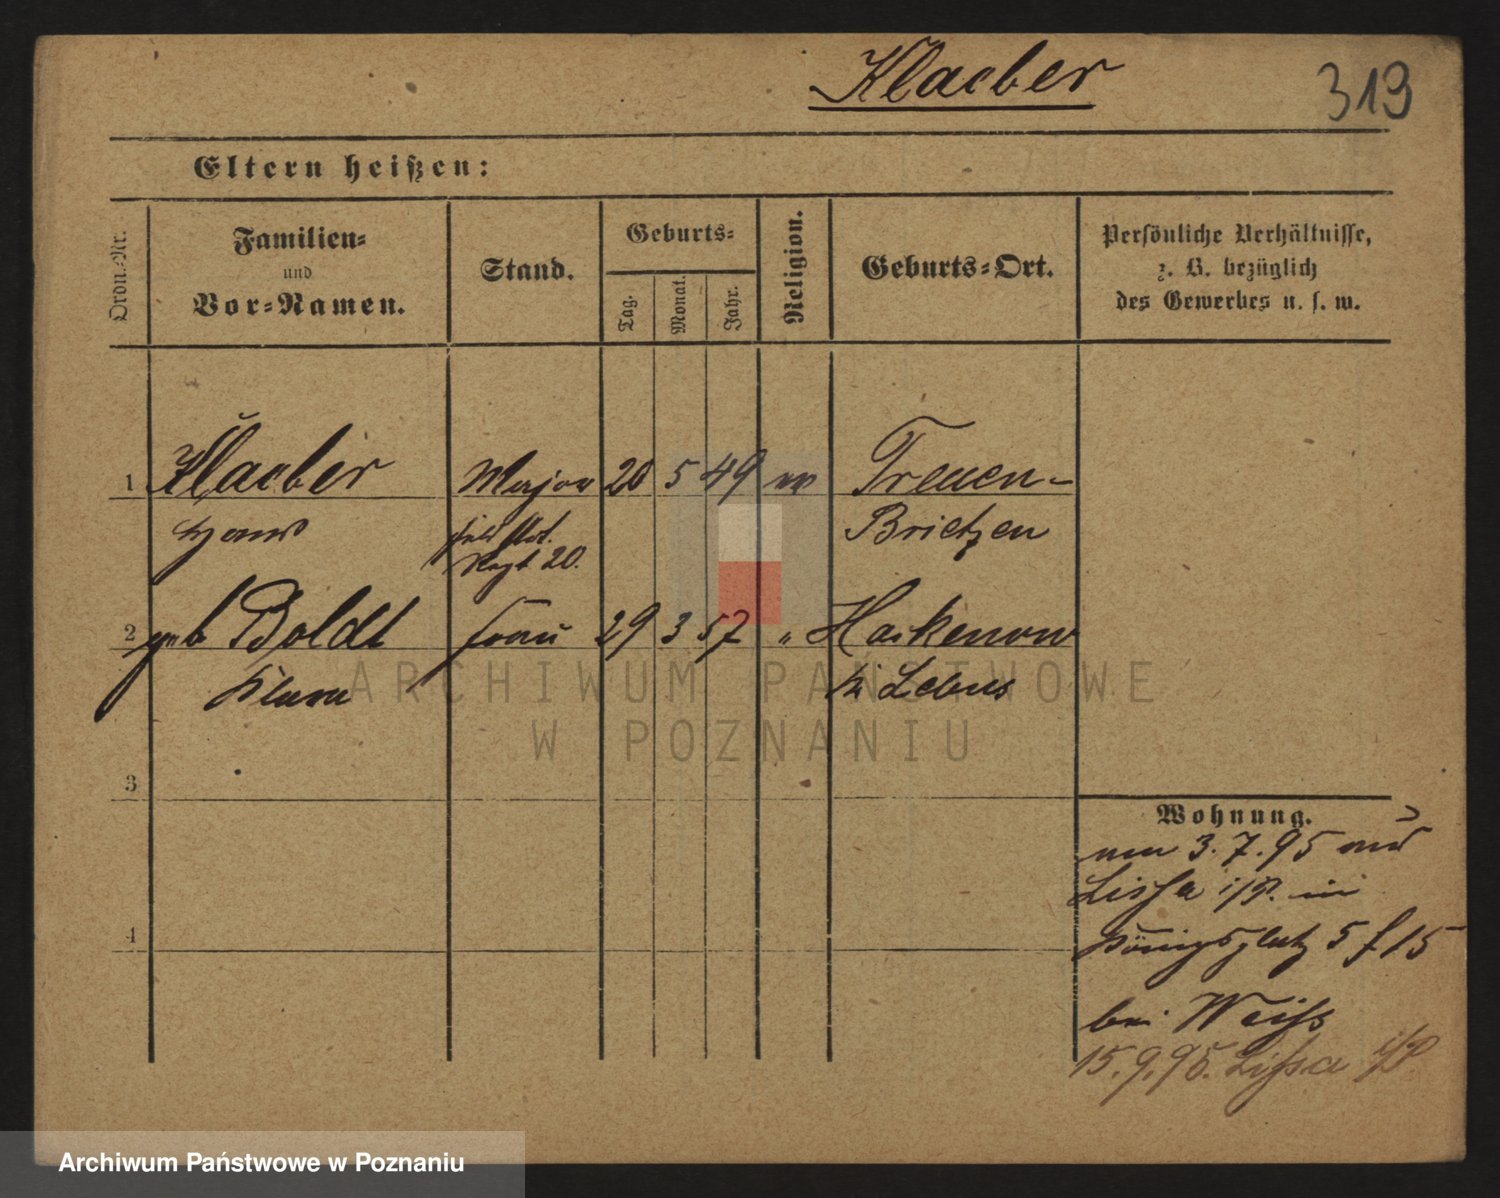 Klaeber
319
Eltern heißen:
Ordn.-Nr.
Familien-
und
Vor-Namen.
Stand.
Geburts-
Tag.
Monat.
Jahr.
Religion.
Geburts-Ort.
Persönliche Verhältnisse,
z. B. bezüglich
des Gewerbes u. s. w.
1 Klaeber Major 20 5 49 ev Treuen-
Hans Feld Art. Brietzen
Regt 20.
2 geb Boldt Frau 29 3 57 " Hackenow
Klara Kr Lebus
3
4
Wohnung.
am 3.7.95 aus
Lissa i/P. in
Königsplatz 5 f 15
bei Weiss
15.9.95. Lissa i/P
ARCHIWUM PAŃSTWOWE
W POZNANIU
Archiwum Państwowe w Poznaniu